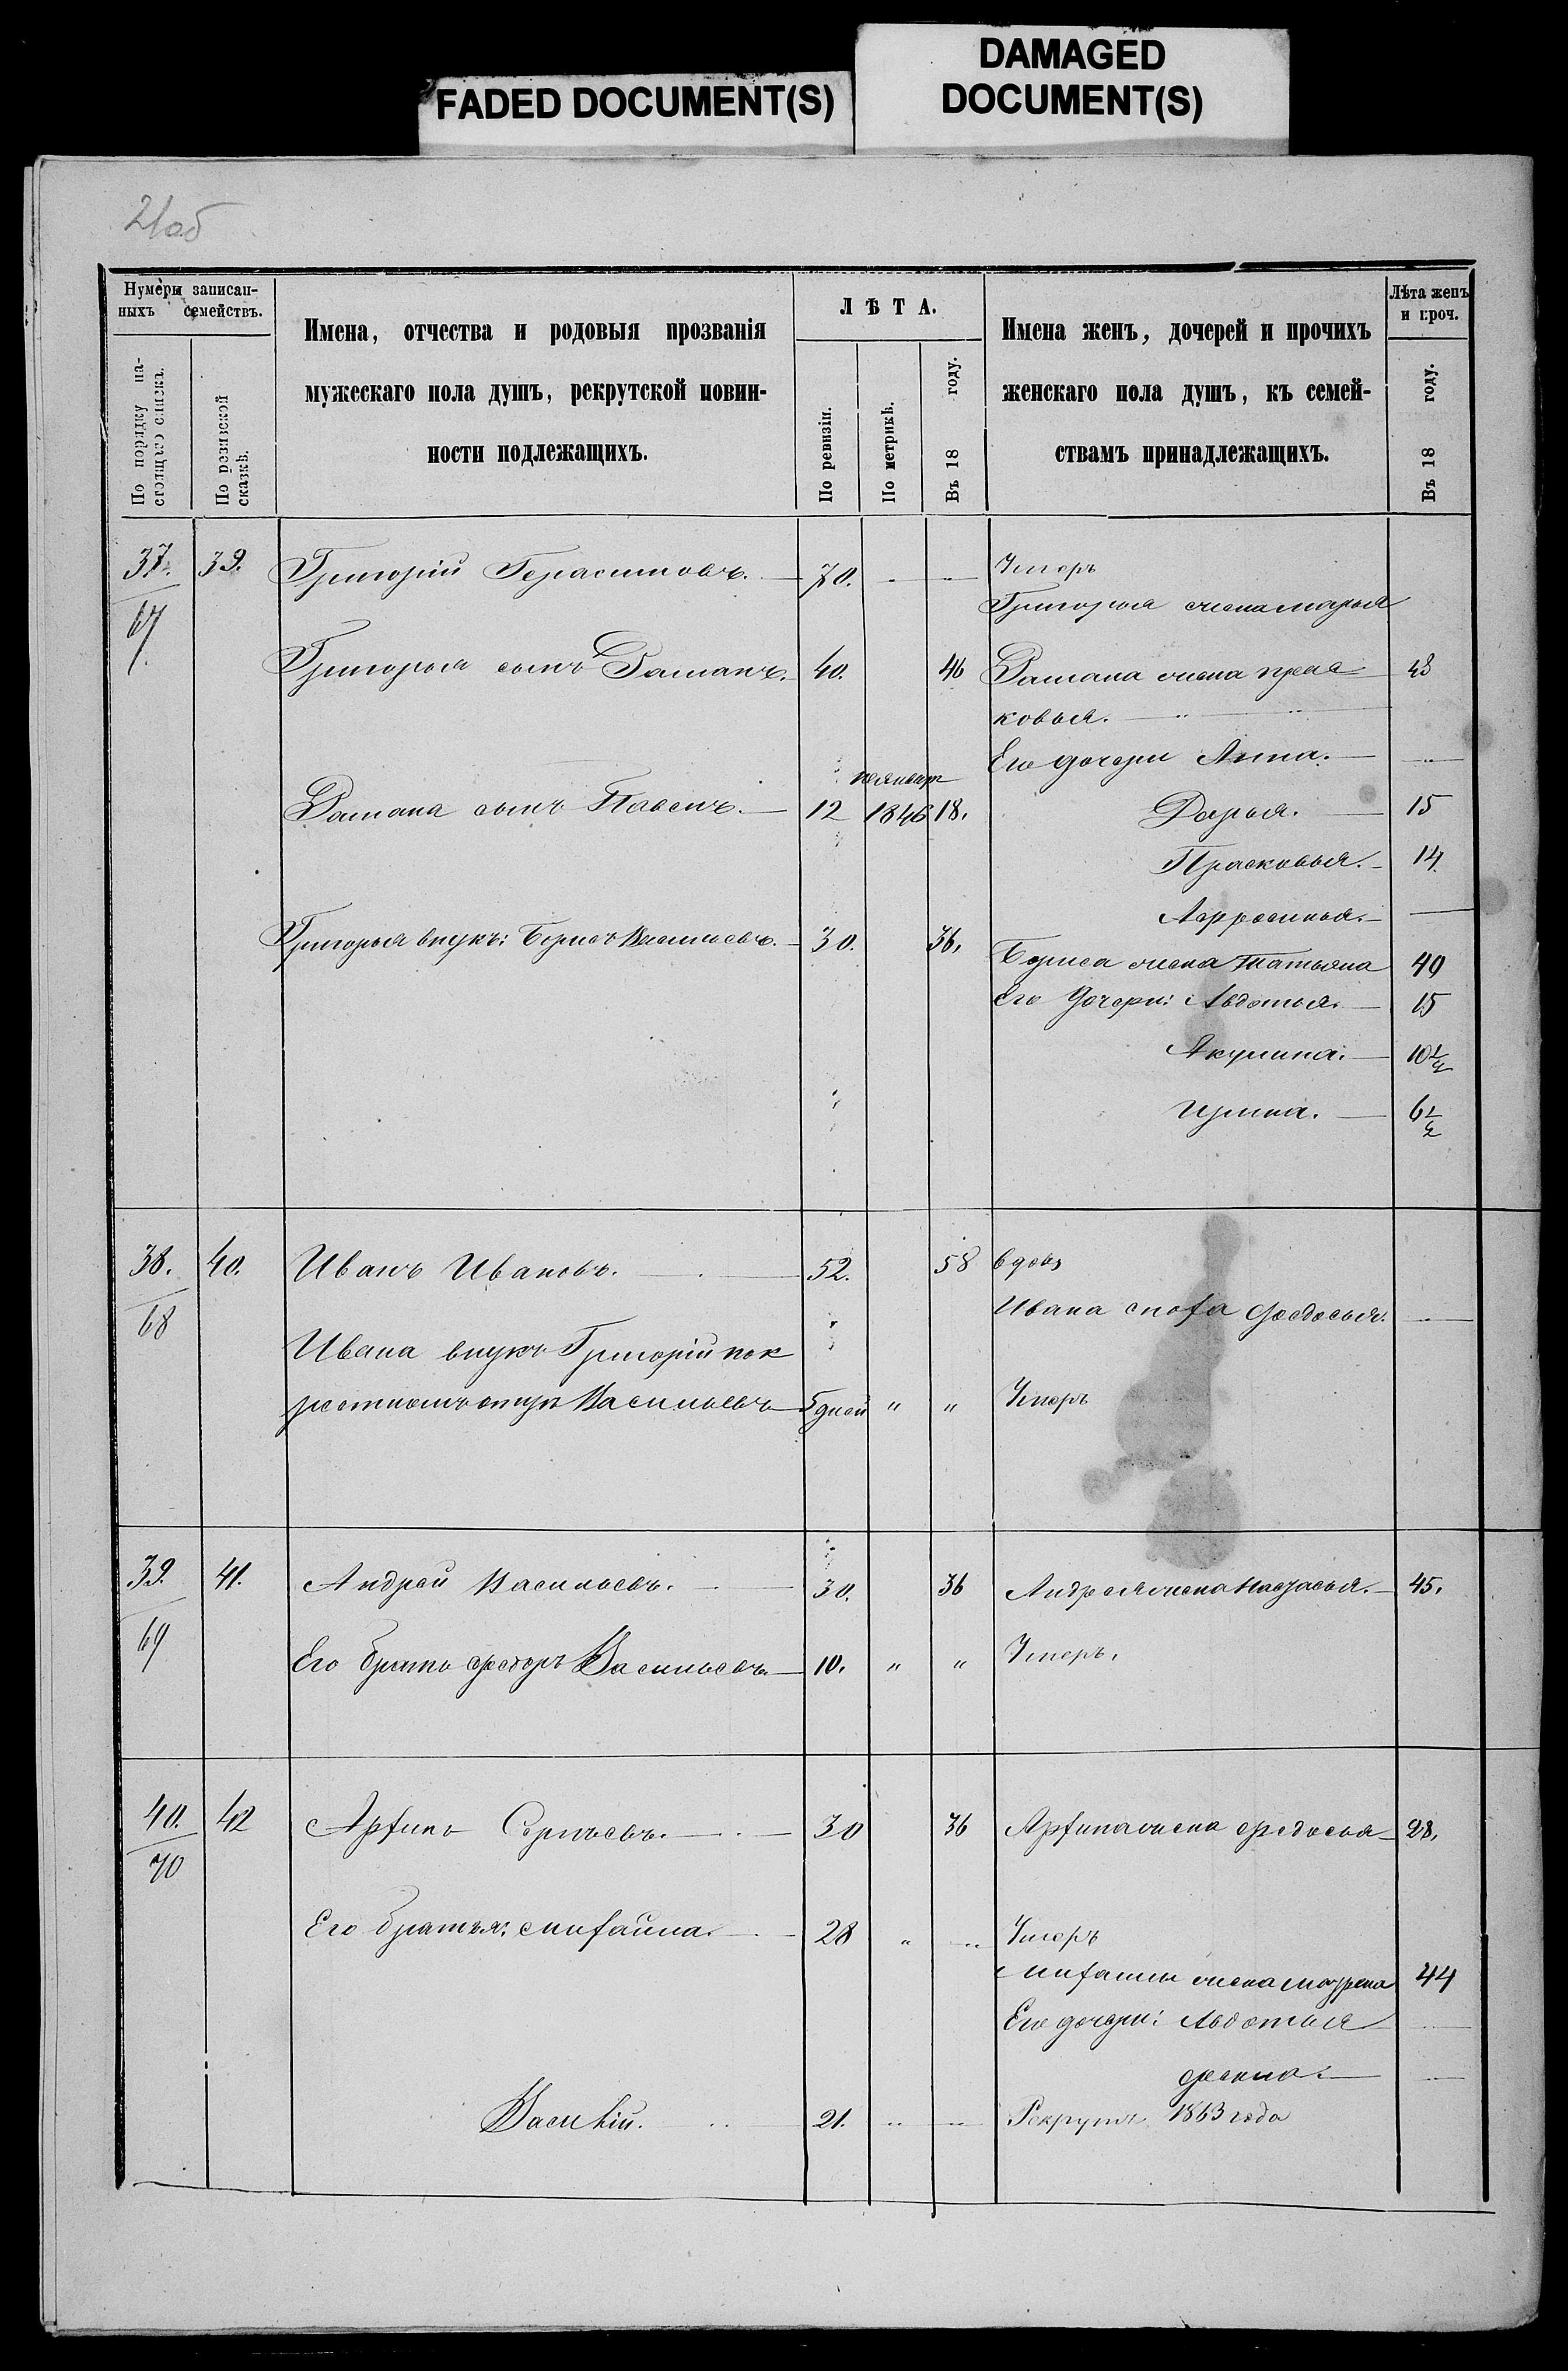 FADED DOCUMENT(S)
DAMAGED
DOCUMENT(S)
21об
Нумера записан-
ныхъ семействъ.
По порядку на-
стоящаго списка.
По ревизской
сказкѣ.
Имена, отчества и родовыя прозванія
мужескаго пола душъ, рекрутской повин-
ности подлежащихъ.
ЛѢТА.
По ревизіи.
По метрикѣ.
Въ 18 году.
Имена женъ, дочерей и прочихъ
женскаго пола душъ, къ семей-
ствамъ принадлежащихъ.
Лѣта женъ
и проч.
Въ 18 году.
37. 39. Григорій Герасимовъ. 70. Умеръ
67 Григорья жена марья
Григорья сынъ Романъ. 40. 46 Романа жена прас 48
ковья.
Его дочери Анна.
Романа сынъ 12 1846 18. Дарья. 15
Прасковья. 14.
Афросинья.
Григорья внукъ: Борисъ Васильевъ. 30. 36. Бориса жена Татьяна 40
Его дочери: Авдотья. 15
Акулина. 10½
Ирина. 6½
38. 40. Иванъ Ивановъ. 52. 58 вдовъ
68 Ивана сноха Федосья.
Ивана внукъ Григорій пок
рестному отцу Васильевъ 5 дней " " Умеръ
39. 41. Андрей Васильевъ. 30. 36 Андрея жена Настасья. 45.
69 Его братъ Федоръ Васильевъ. 10. " " Умеръ.
40. 42 Архипъ 30 36 Архипа жена Федосья 28.
70
Его братья: михайла. 28 " Умеръ
михайлы жена матрена 44
Его дочери: Авдотья
Василій. 21. Рекрутъ 1863 года